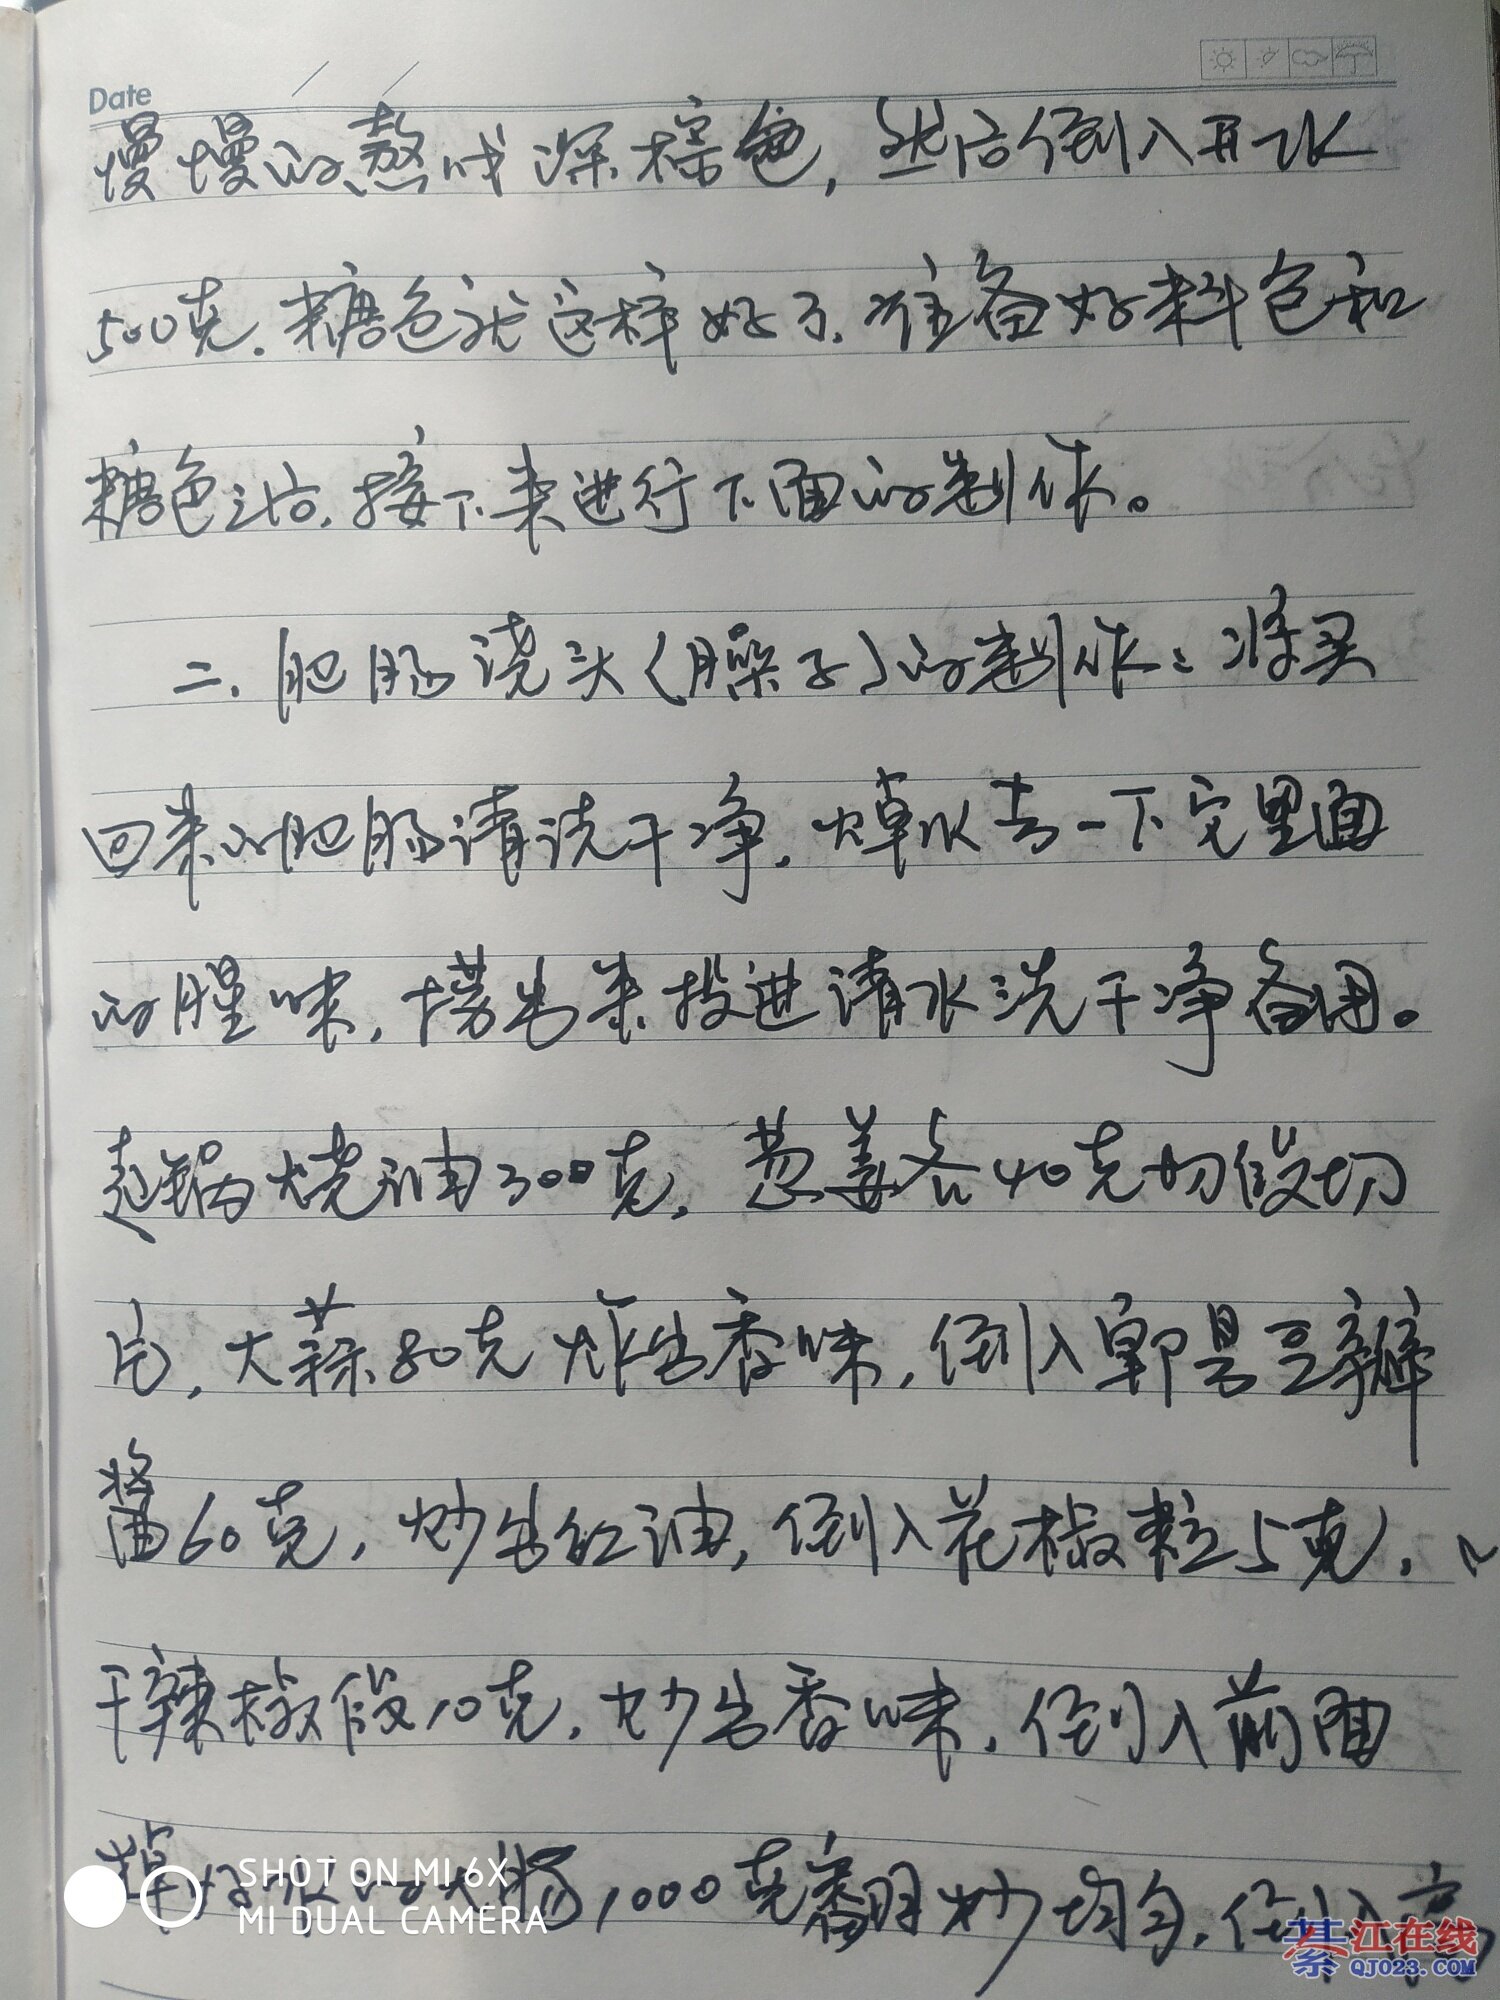 Date
慢慢的熬成深棕色,然后倒入开水
500克.糖色就这样好了.准备好料包和
糖色之后,接下来进行下面的制作。
二.肥肠浇头(臊子)的制作:将买
回来的肥肠清洗干净.焯水去一下它里面
的腥味,捞出来投进清水洗干净备用。
起锅烧油300克.葱姜各40克切段切
片,大蒜80克炸出香味,倒入郫县豆瓣
酱60克,炒出红油,倒入花椒粒5克.
干辣椒段10克.炒出香味.倒入前面
焯好水的大肠1000克翻炒均匀.倒入高
SHOT ON MI 6X
MI DUAL CAMERA
綦江在线
QJ023.COM